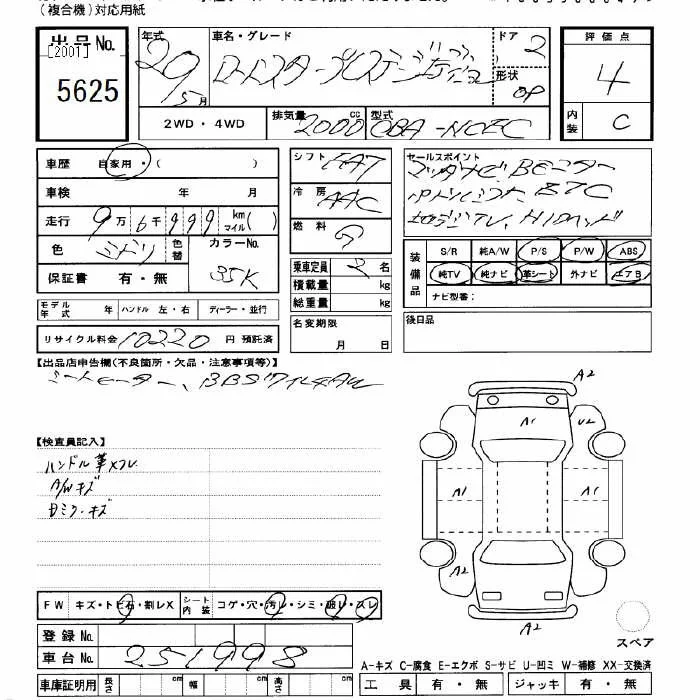 (複合機)対応用紙
出品No.
[200T]
5625
年式
29
5月
車名・グレード
ドア
2
形状
OP
評価点
4
内装
C
2WD・4WD
排気量
2000
cc
型式
CBA-NCEC
車歴 自家用・( )
車検 年 月
走行 9万 6千 999 km マイル( )
色 ミドリ
色替
カラーNo.
35K
保証書 有・無
シフト FAT
冷房 AAC
燃料 G
乗車定員 2名
積載量 kg
総重量 kg
セールスポイント
装備品
S/R 純A/W P/S P/W ABS
純TV 純ナビ 革シート 外ナビ エアB
ナビ型番:
モデル年式 年 ハンドル 左・右 ディーラー・並行
リサイクル料金 10220 円 預託済
名変期限
月 日
後日品
【出品店申告欄(不良箇所・欠品・注意事項等)】
シートヒーター、BBS
【検査員記入】
ハンドル革スレ
A/Wキズ
Dミラーキズ
A2
A1
U2
A1
A1
A2
A2
スペア
FW キズ・トビ石・割レX
シート内装 コゲ・穴・汚レ・シミ・破レ・スレ
登録No.
車台No. 251998
A-キズ C-腐食 E-エクボ S-サビ U-凹ミ W-補修 XX-交換済
車庫証明用 長さ cm 幅 cm 高さ cm
工具 有・無 ジャッキ 有・無